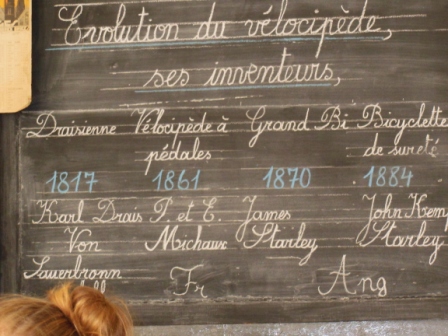 Evolution du vélocipède,
ses inventeurs,
Draisienne Vélocipède à Grand Bi Bicyclette
pédales de sureté
1817 1861 1870 1884
Karl Drais P. et E. James John Kemp
Von Michaux Starley Starley
Sauerbronn
Fr Ang